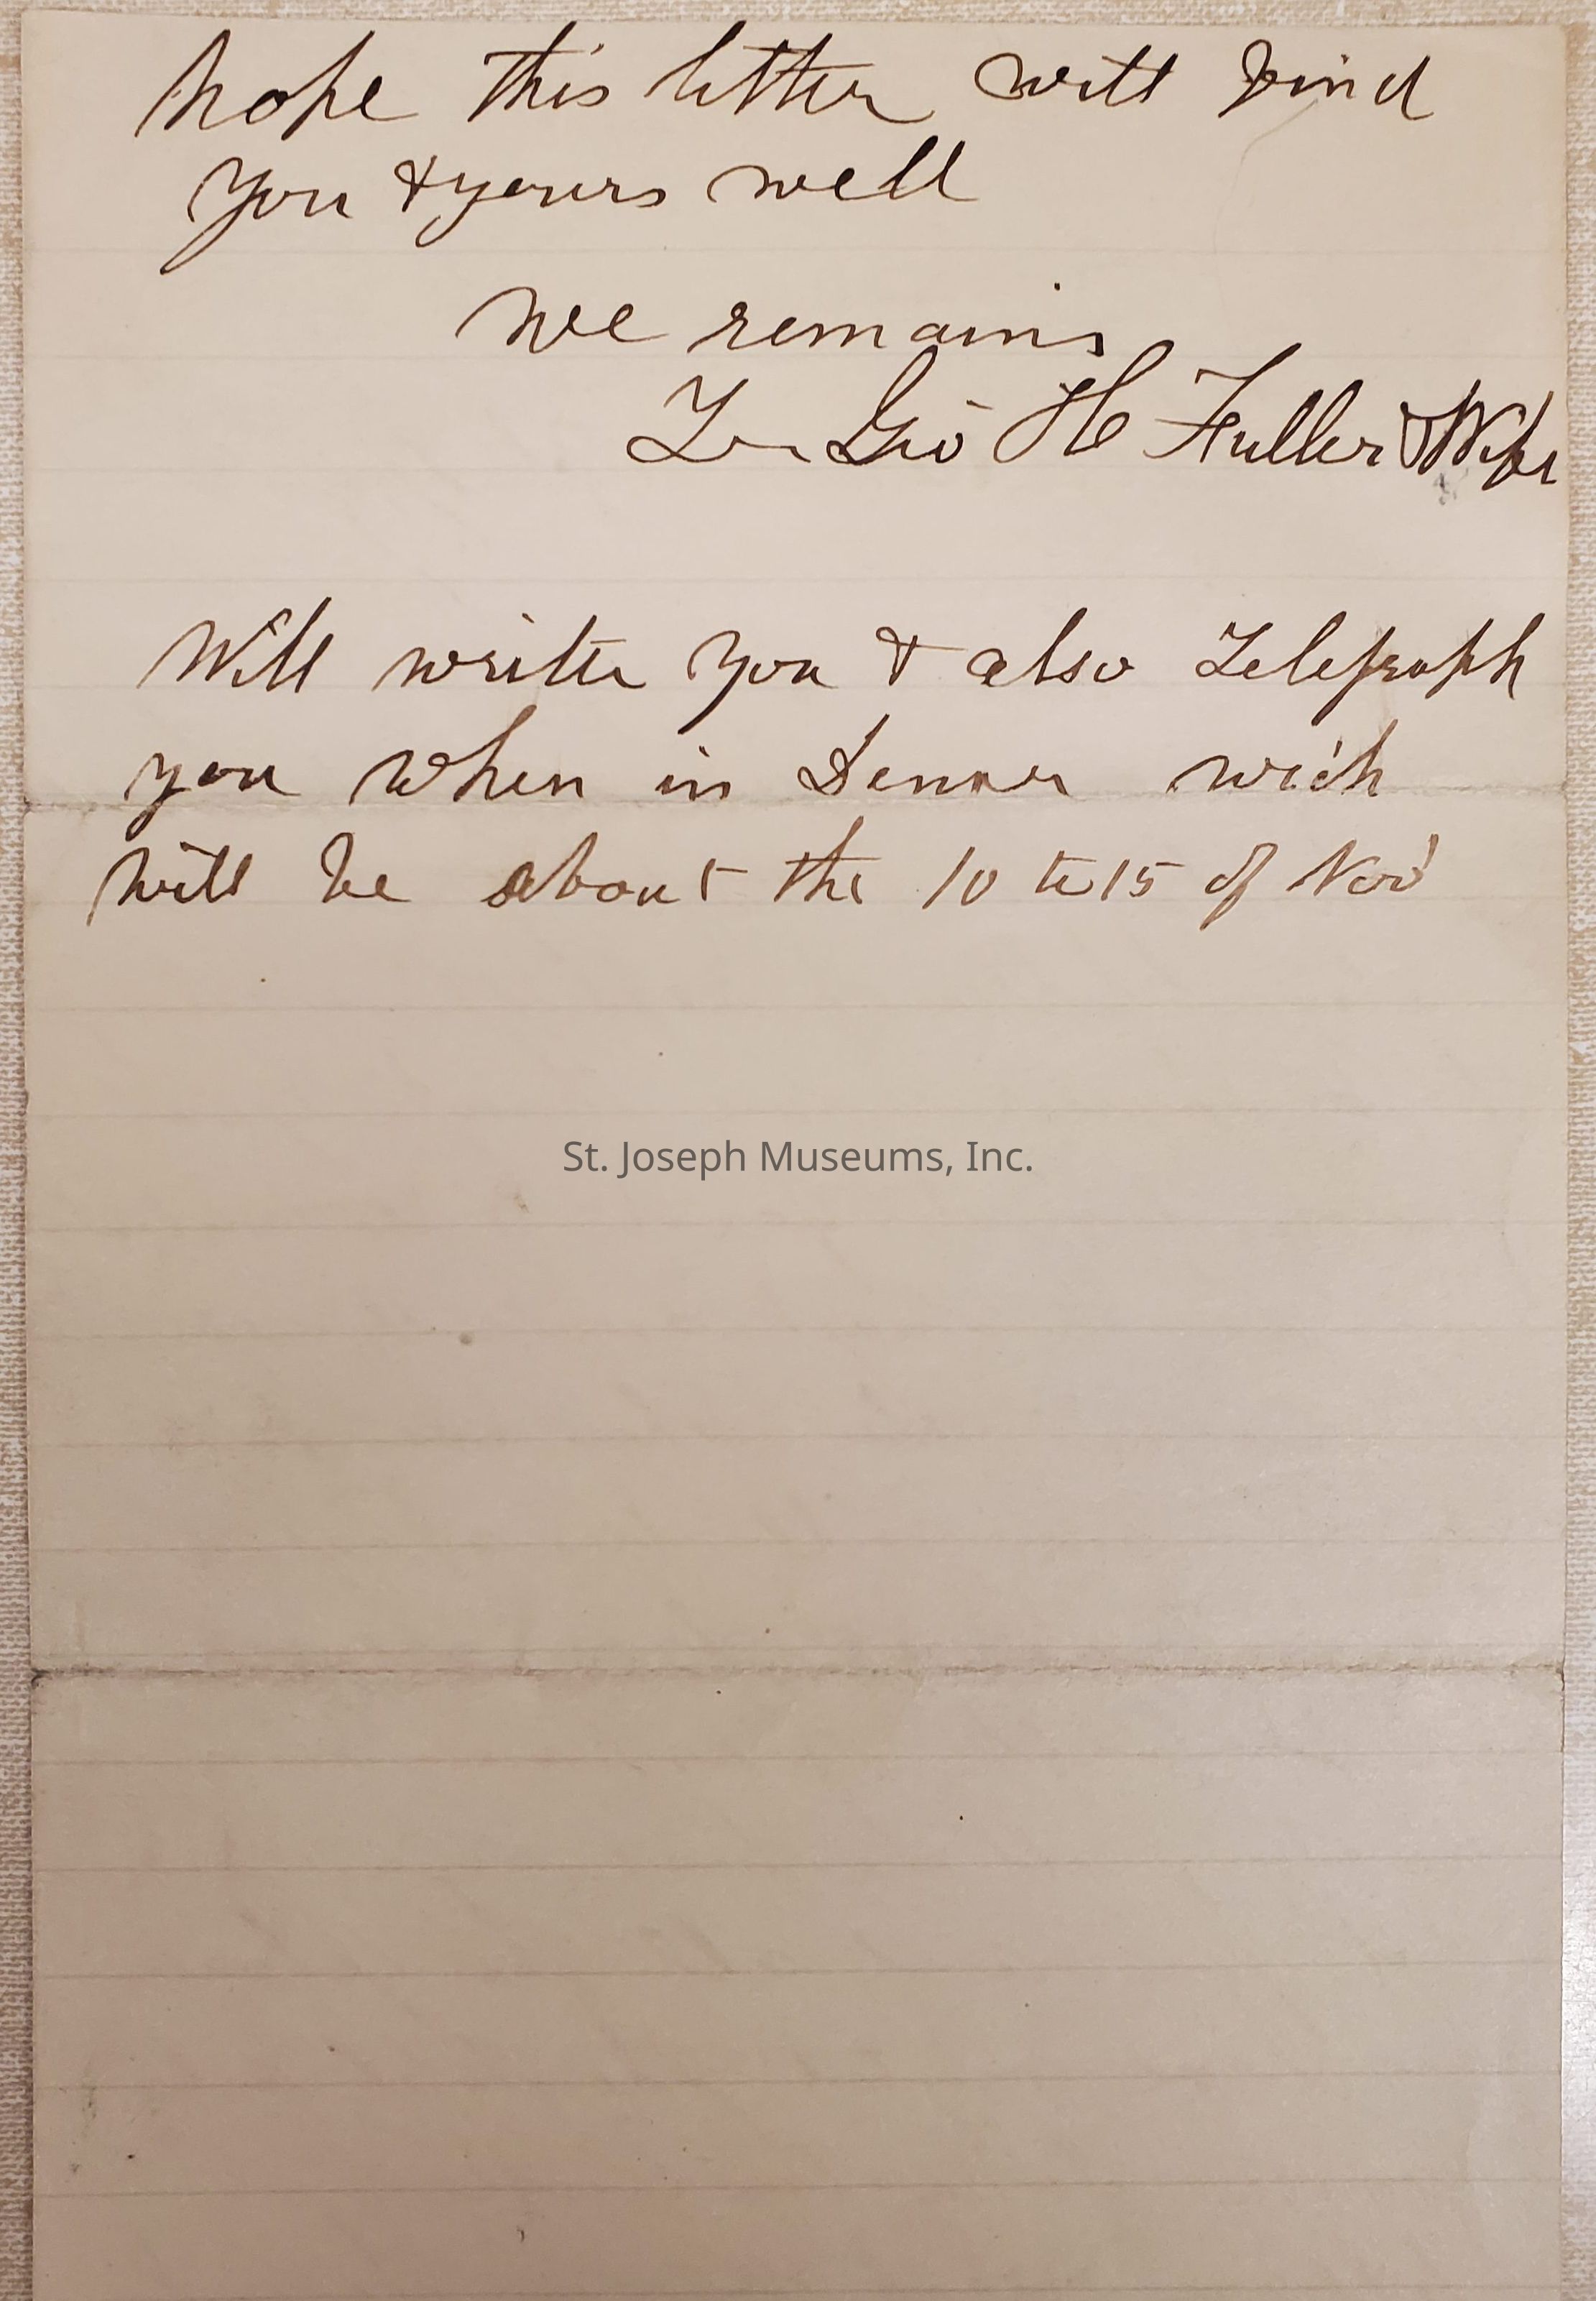 hope this letter will find
you & yours well
we remain
Geo H Fuller & Wife
Will write you & also Telegraph
you when in Denver wich
will be about the 10 to 15 of Nov
St. Joseph Museums, Inc.